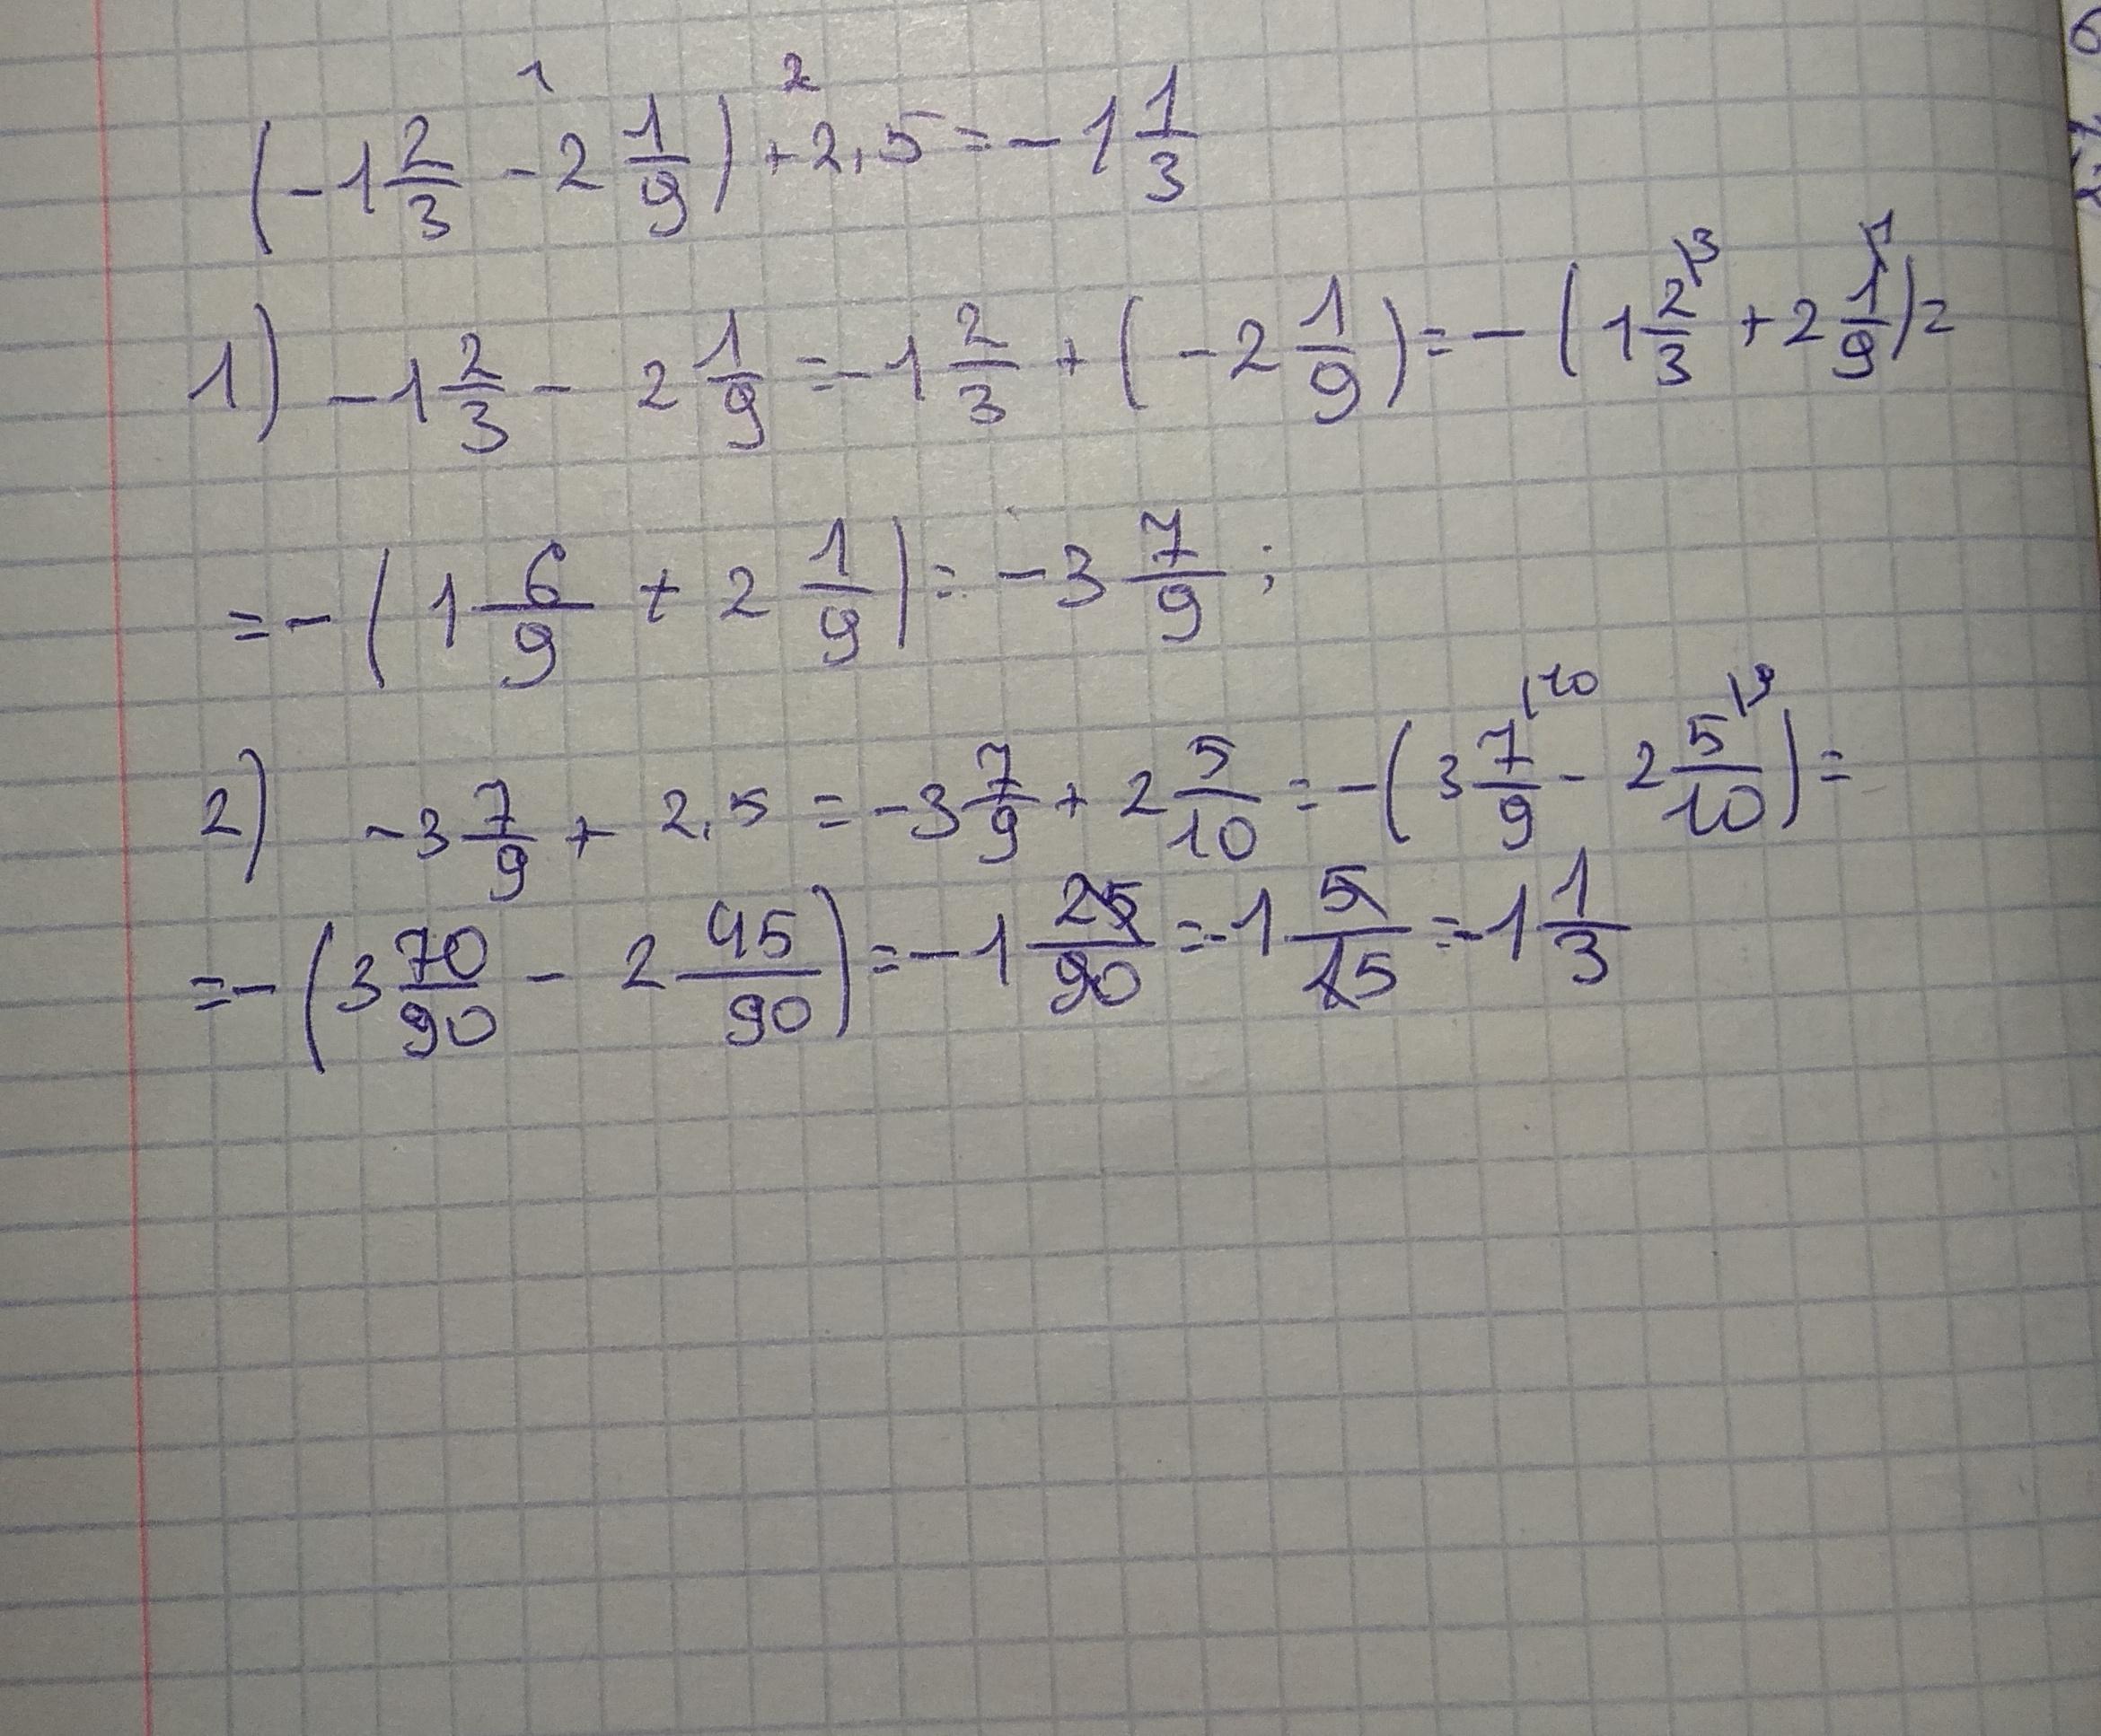 (-1 2/3 - 2 1/9) + 2,5 = -1 1/3
1) -1 2/3 - 2 1/9 = -1 2/3 + (-2 1/9) = -(1 2/3 + 2 1/9) =
= -(1 6/9 + 2 1/9) = -3 7/9;
2) -3 7/9 + 2,5 = -3 7/9 + 2 5/10 = -(3 7/9 - 2 5/10) =
= -(3 70/90 - 2 45/90) = -1 25/90 = -1 5/15 = -1 1/3